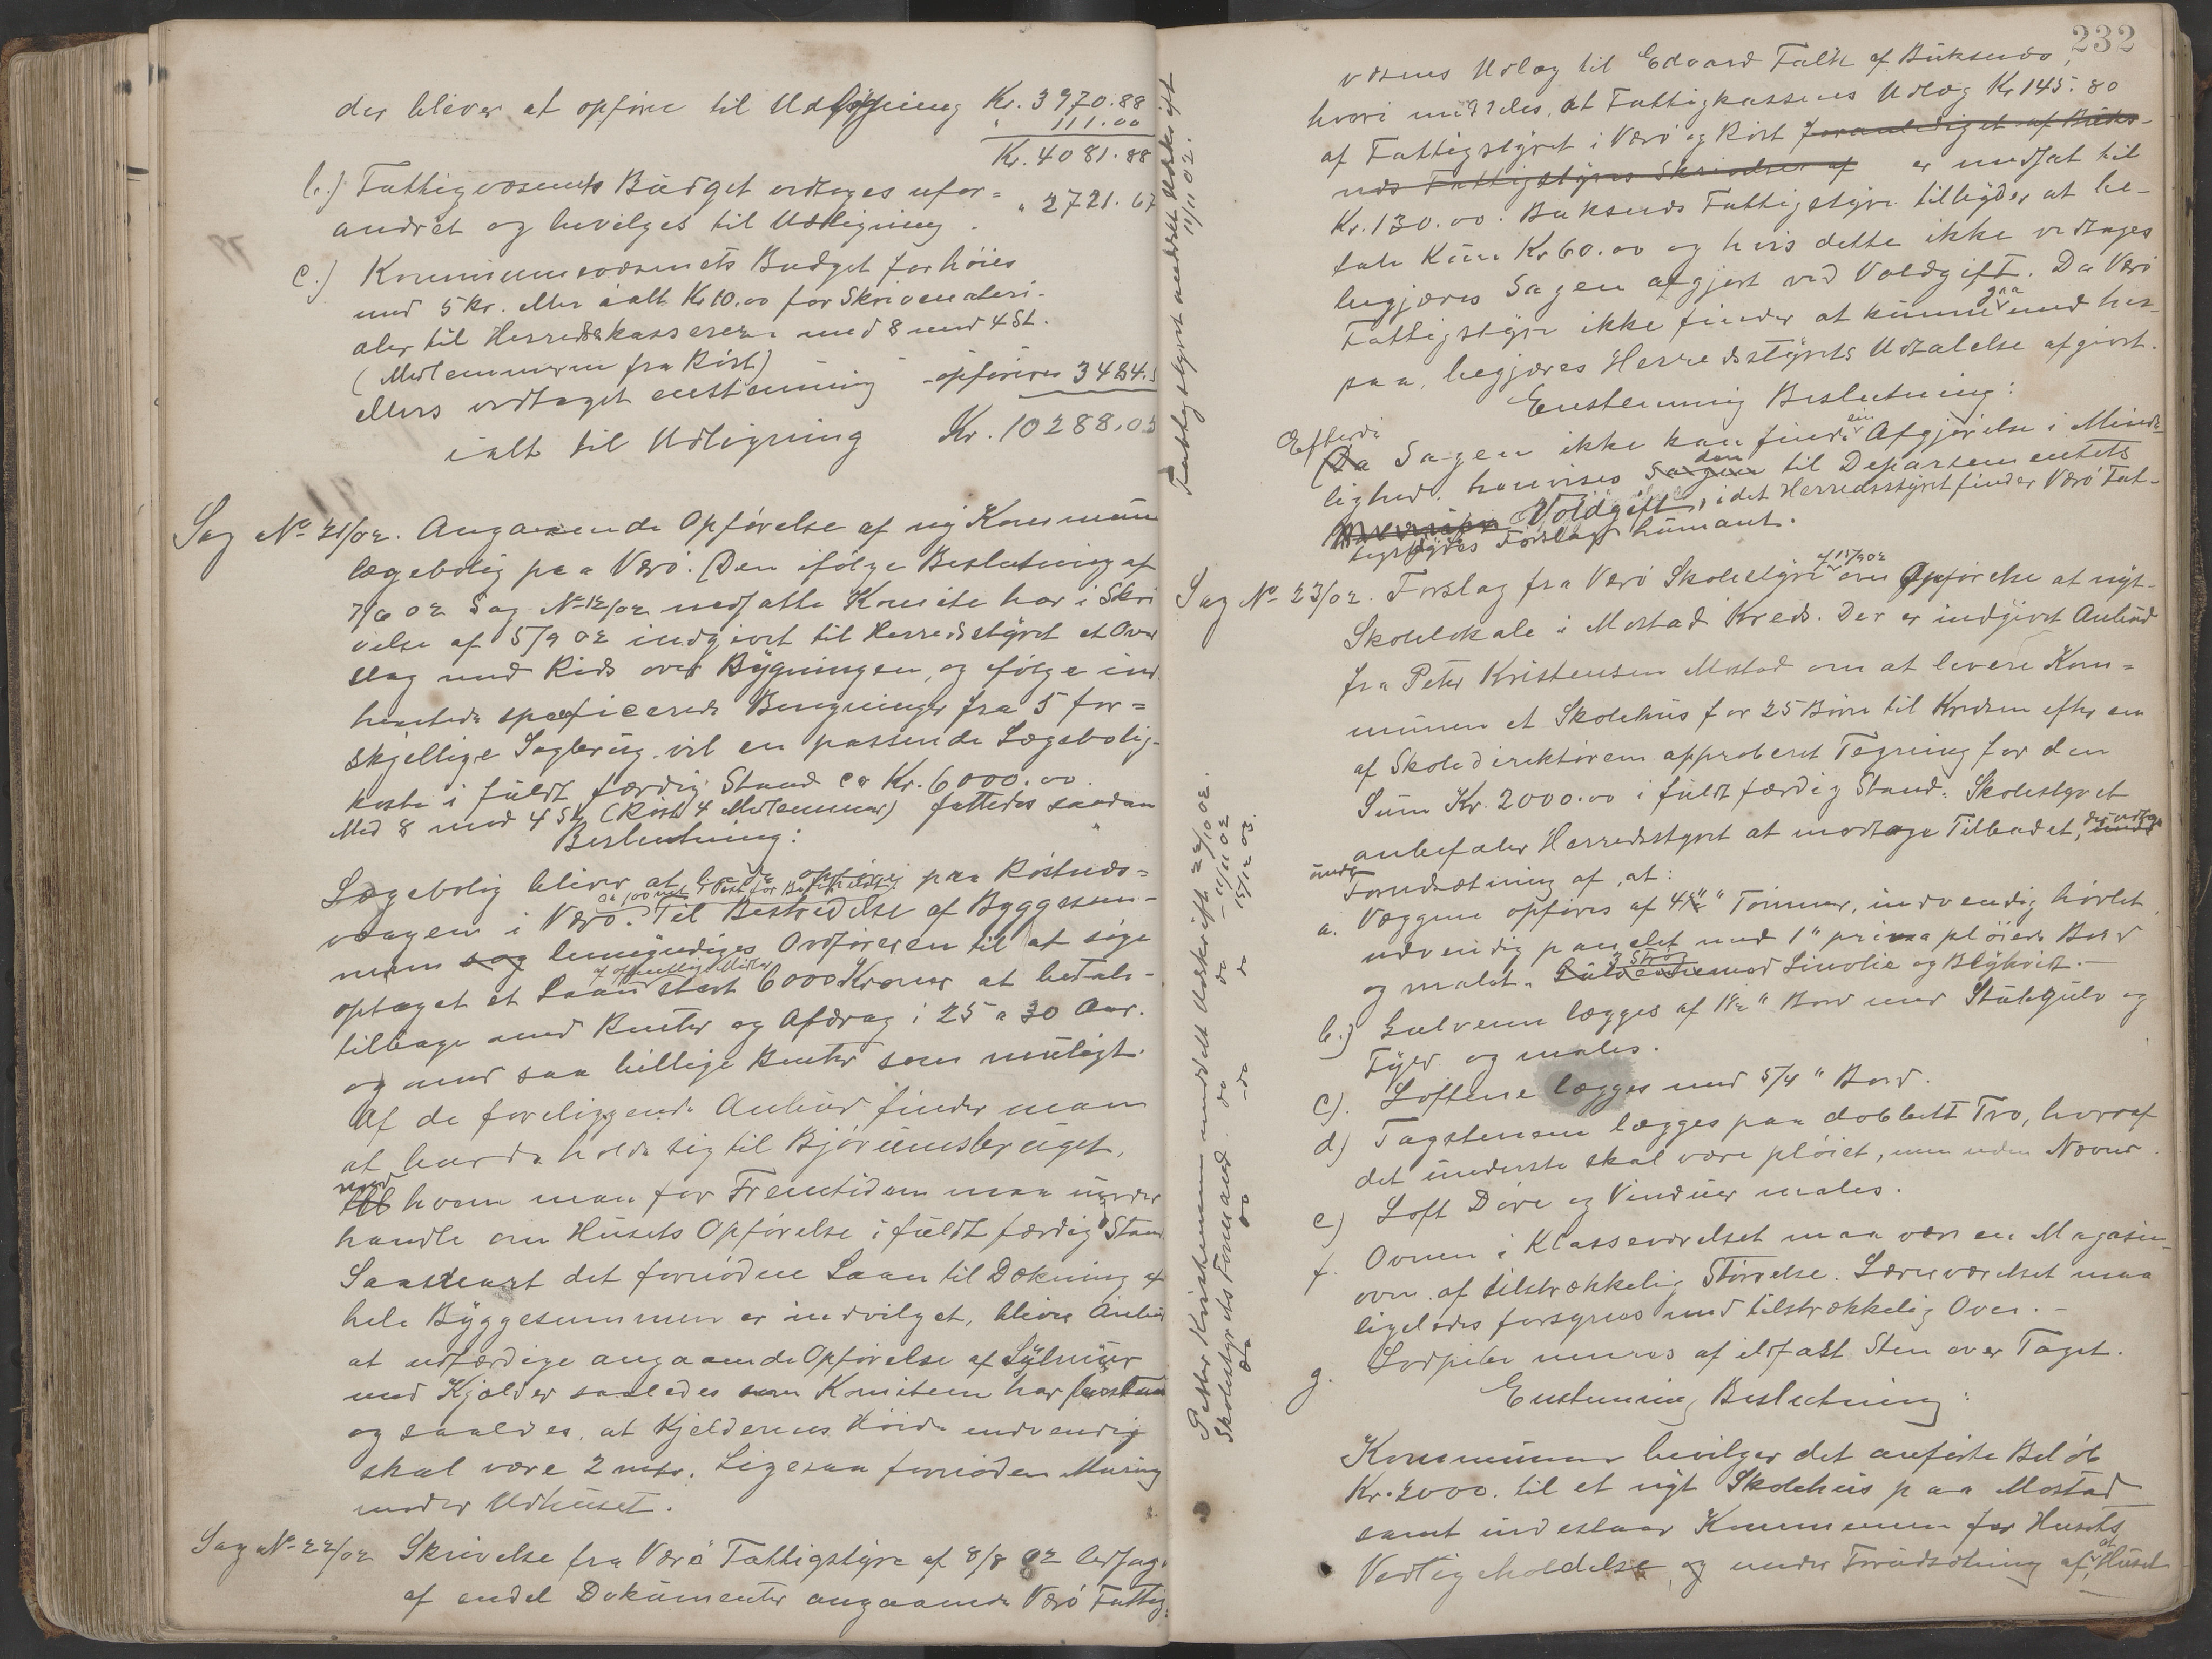 der bliver at opføre til Udligning Kr. 3970.88
" 111.00
Kr. 4081.88
b.) Fattigvæsenets Budget vedtages ufor=
andret og bevilges til Udligning. " 2721.67
c.) Kommunevæsenets Budget forhöies
med 5 kr. eller ialt Kr 10.00 for Skrivemateri-
aler til Herredskasserer med 8 mod 4 St.
(Medlemmerne fra Röst)
ellers vedtaget enstemmig opføres 3484.5
ialt til Udligning Kr. 10288.05
Sag No 21/02. Angaaende Opførelse af ny Kommune
lægebolig paa Værö. Den ifölge Beslutning af
7/6 02 Sag No 12/02 nedsatte Komite har i Skri
velse af 5/9 02 indgivet til Herredsstyret et Over
slag med Rids over Bygningen, og ifølge ind
hentede specificerede Beregninger fra 5 for=
skjellige Sagbrug vil en passende Lægebolig
koste i fuldt færdig Stand ca Kr. 6000.00.
Med 8 mod 4 St. (Röst 4 Medlemmer) fattedes saadan
Beslutning:
Lægebolig bliver at opføre paa Röstnes=
ca 100 met. Vest for
vaagen i Værö. Til Bestridelse af Byggesum-
men sag bemyndiges Ordföreren til at søge
af offentlige Midler
optaget et Laan stort 6000 Kroner at betale
tilbage med Renter og Afdrag i 25 a 30 Aar.
og med saa billige Renter som muligt.
Af de foreliggende Anbud finder man
at burde holde sig til Bjørumsbruget,
med
hvem man for Fremtiden maa under
handle om Husets Opførelse i fuldt færdig Stand
Saasnart det fornødne Laan til Dækning af
hele Byggesummen er indvilget, bliver Anbud
at udfærdige angaaende Opførelse af Sylmur
med Kjelder saaledes som Komiteen har
og saaledes, at Kjelderens Høide indvendig
skal være 2 metr. Ligesaa fornøden Muring
under Udhuset.
Sag No 22/02 Skrivelse fra Værö Fattigstyre af 8/8 02 ledsag.
af endel Dokumenter angaaende Værö Fattig-
Fattigstyret meddelt Udskrift
11/11 02.
232
væsens Udlæg til Edvard Falk af Buksnes,
hvori meddeles, at Fattigkassens Udlæg Kr 145.80
af Fattigstyret i Værö og Röst foranlediget af Buks-
nes Fattigstyres Skrivelse af er nedsat til
Kr. 130.00. Buksnes Fattigstyre tilbyder at be-
tale Kun Kr 60.00 og hvis dette ikke vedtages
begjæres Sagen afgjort ved Voldgift. Da Værö
gaa
Fattigstyre ikke finder at kunne med her-
paa, begjæres Herredsstyrets Udtalelse afgivet.
Enstemmig Beslutning:
Efterdi
Da Sagen ikke kan finde en Afgjørelse i Minde-
lighed, henvises Sagen den til Departementets
Voldgift, idet Herredsstyret finder Værö Fat-
tigstyres Forslag humant.
Sag No 23/02. Forslag fra Værö Skolestyre af 15/9 02 om Opførelse at nyt
Skolelokale i Mostad Kreds. Der er indgivet Anbud
fra Peter Kristensen Mostad om at levere Kom=
munen et Skolehus for 25 Börn til Kredsen efter en
af Skoledirektøren approberet Tegning for den
Sum Kr. 2000.00 i fuldt færdig Stand. Skolestyret
anbefaler Herredsstyret at modtage Tilbudet,
under
Forudsætning af, at:
a. Væggene opføres af 4½" Tømmer, indvendig høvlet,
udvendig panelet med 1" prima pløiede Bord
og malet 3 Strög med Linolie og Blyhvidt.-
b.) Gulvene lægges af 1½" Bord med Stubgulv og
Fyld og males.
c). Loftene lægges med 5/4" Bord.
d) Tagstenen lægges paa dobbelt Tro, hvoraf
det underste skal være pløiet, men uden Næver.
e) Loft Döre og Vinduer males.
f. Ovnen i Klasseværelset maa være en Magasin-
ovn af tilstrækkelig Størrelse. Lærerværelset maa
ligeledes forsynes med tilstrækkelig Ovn.-
g. Lodpiber mures af ildfast Sten over Taget.
Enstemmig Beslutning:
Kommunen bevilger det anførte Beløb
Kr. 2000. til et nyt Skolehus paa Mostad
samt indestaar Kommunen for Husets
Vedligeholdelse, og under Forudsætning af, at Huset
Peter Kristensen meddelt Udskrift 22/10 02.
Skolestyrets Formand do do 11/11 02
do do do do 15/12 03.